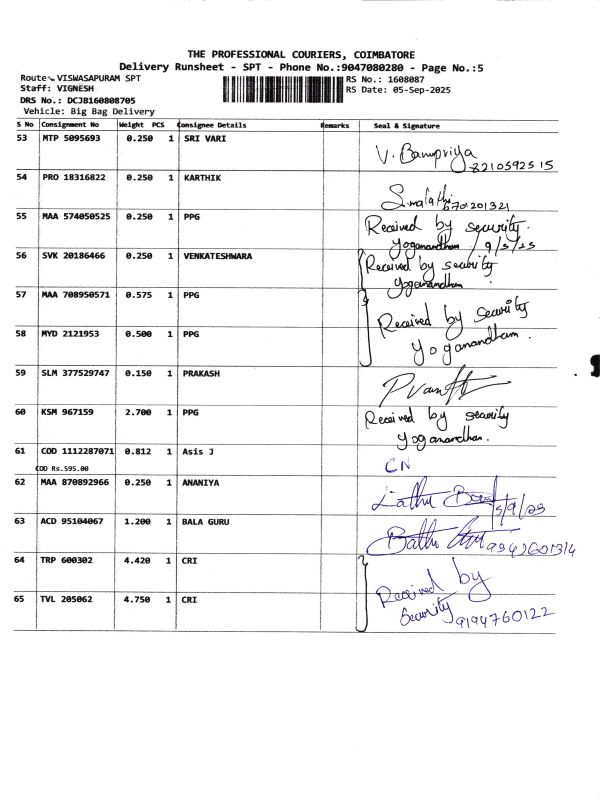 THE PROFESSIONAL COURIERS, COIMBATORE
Delivery Runsheet - SPT - Phone No.:9047080280 - Page No.:5
Route:- VISWASAPURAM SPT RS No.: 1608087
Staff: VIGNESH RS Date: 05-Sep-2025
DRS No.: DCJB160808705
Vehicle: Big Bag Delivery
S No Consignment No Weight PCS Consignee Details Remarks Seal & Signature
53 MTP 5095693 0.250 1 SRI VARI
V. Banupriya
8210592515
54 PRO 18316822 0.250 1 KARTHIK
6701201321
55 MAA 574050525 0.250 1 PPG Received by security.
Yoganandham / 9/5/25
56 SVK 20186466 0.250 1 VENKATESHWARA Received by security
Yoganandham
57 MAA 708950571 0.575 1 PPG Received by security
58 MYD 2121953 0.500 1 PPG Yoganandham.
59 SLM 377529747 0.150 1 PRAKASH
60 KSM 967159 2.700 1 PPG Received by security
Yoganandham.
61 COD 1112287071 0.812 1 Asis J CN
COD Rs.595.00
62 MAA 870892966 0.250 1 ANANIYA
5/9/25
63 ACD 95104067 1.200 1 BALA GURU
64 TRP 600302 4.420 1 CRI Received by
65 TVL 205062 4.750 1 CRI Security
9194760122